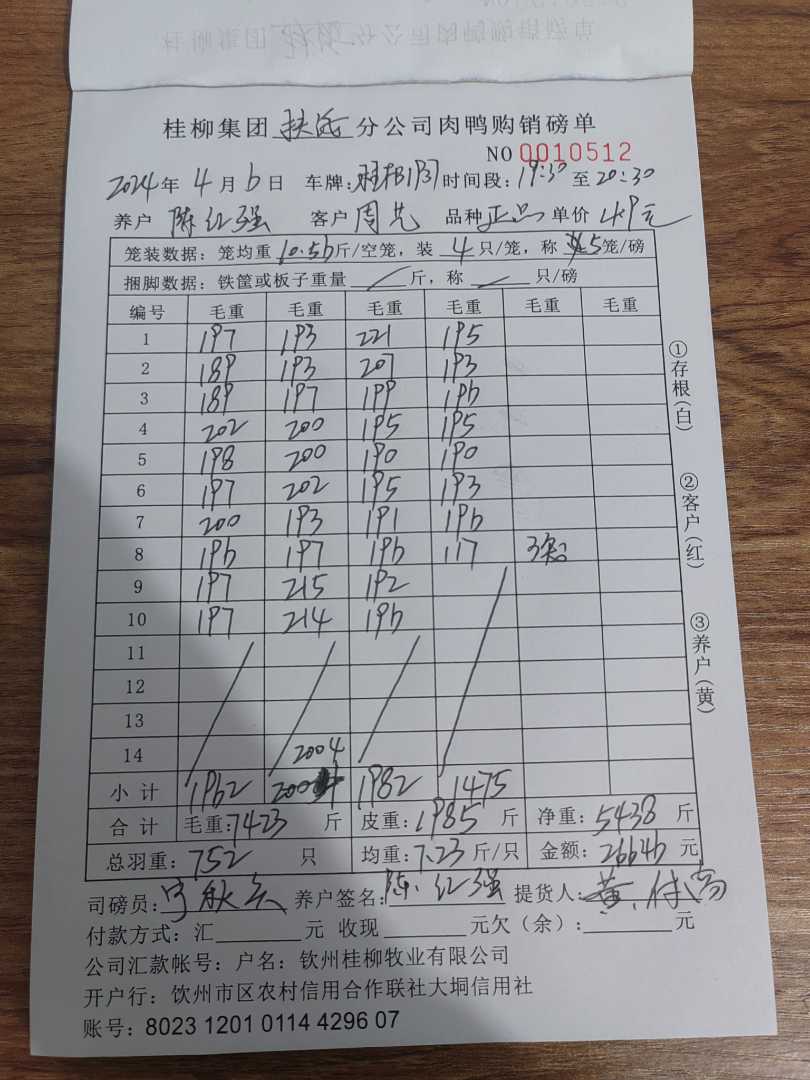 桂柳集团 扶氏 分公司肉鸭购销磅单
NO 0010512
2024年 4月6日 车牌: 时间段: 19:30至20:30
养户 陈红强 客户 周先 品种 正品 单价 4.9元
笼装数据: 笼均重 10.56斤/空笼, 装 4 只/笼, 称 5笼/磅
捆脚数据: 铁筐或板子重量 斤, 称 只/磅
编号 毛重 毛重 毛重 毛重 毛重 毛重
1 197 193 221 195
2 189 193 207 193
3 189 197 199 196
4 202 200 195 195
5 198 200 190 190
6 197 202 195 193
7 200 193 191 196
8 196 197 196 117 3笼
9 197 215 192
10 197 214 196
11
12
13
14 2004
小计 1962 1982 1475
合计 毛重:7423 斤 皮重:1985 斤 净重:5438 斤
总羽重:752 只 均重:7.23斤/只 金额:26646 元
司磅员: 养户签名:陈红强 提货人:
付款方式: 汇 元 收现 元欠(余): 元
公司汇款帐号: 户名: 钦州桂柳牧业有限公司
开户行: 饮州市区农村信用合作联社大垌信用社
账号: 8023 1201 0114 4296 07
①存根(白)
②客户(红)
③养户(黄)